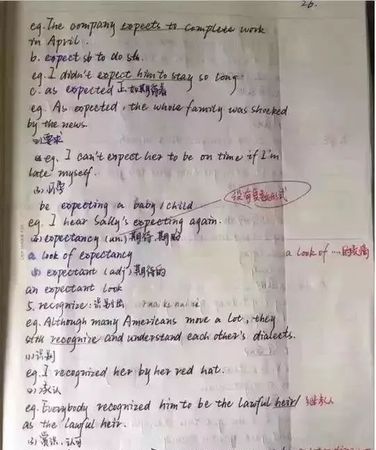 26.
eg. The company expects to complete work
in April.
b. expect sb to do sth.
eg. I didn't expect him to stay so long
c. as expected 正如期待着
eg. As expected, the whole family was shocked
by the news.
(2)要求
eg. I can't expect her to be on time if I'm
late myself.
be expecting a baby/child
没有复数形式
eg. I hear Sally's expecting again.
(4) expectancy (un.) 期待, 期盼
a look of expectancy
a look of ...的表情
(5) expectant (adj.) 期待的
an expectant look
5. recognize:
eg. Although many Americans move a lot, they
still recognize and understand each other's dialects.
(1)识别
eg. I recognized her by her red hat.
(2)承认
eg. Everybody recognized him to be the lawful heir/ 继承人
as the lawful heir.
(3) 赏识, 认可